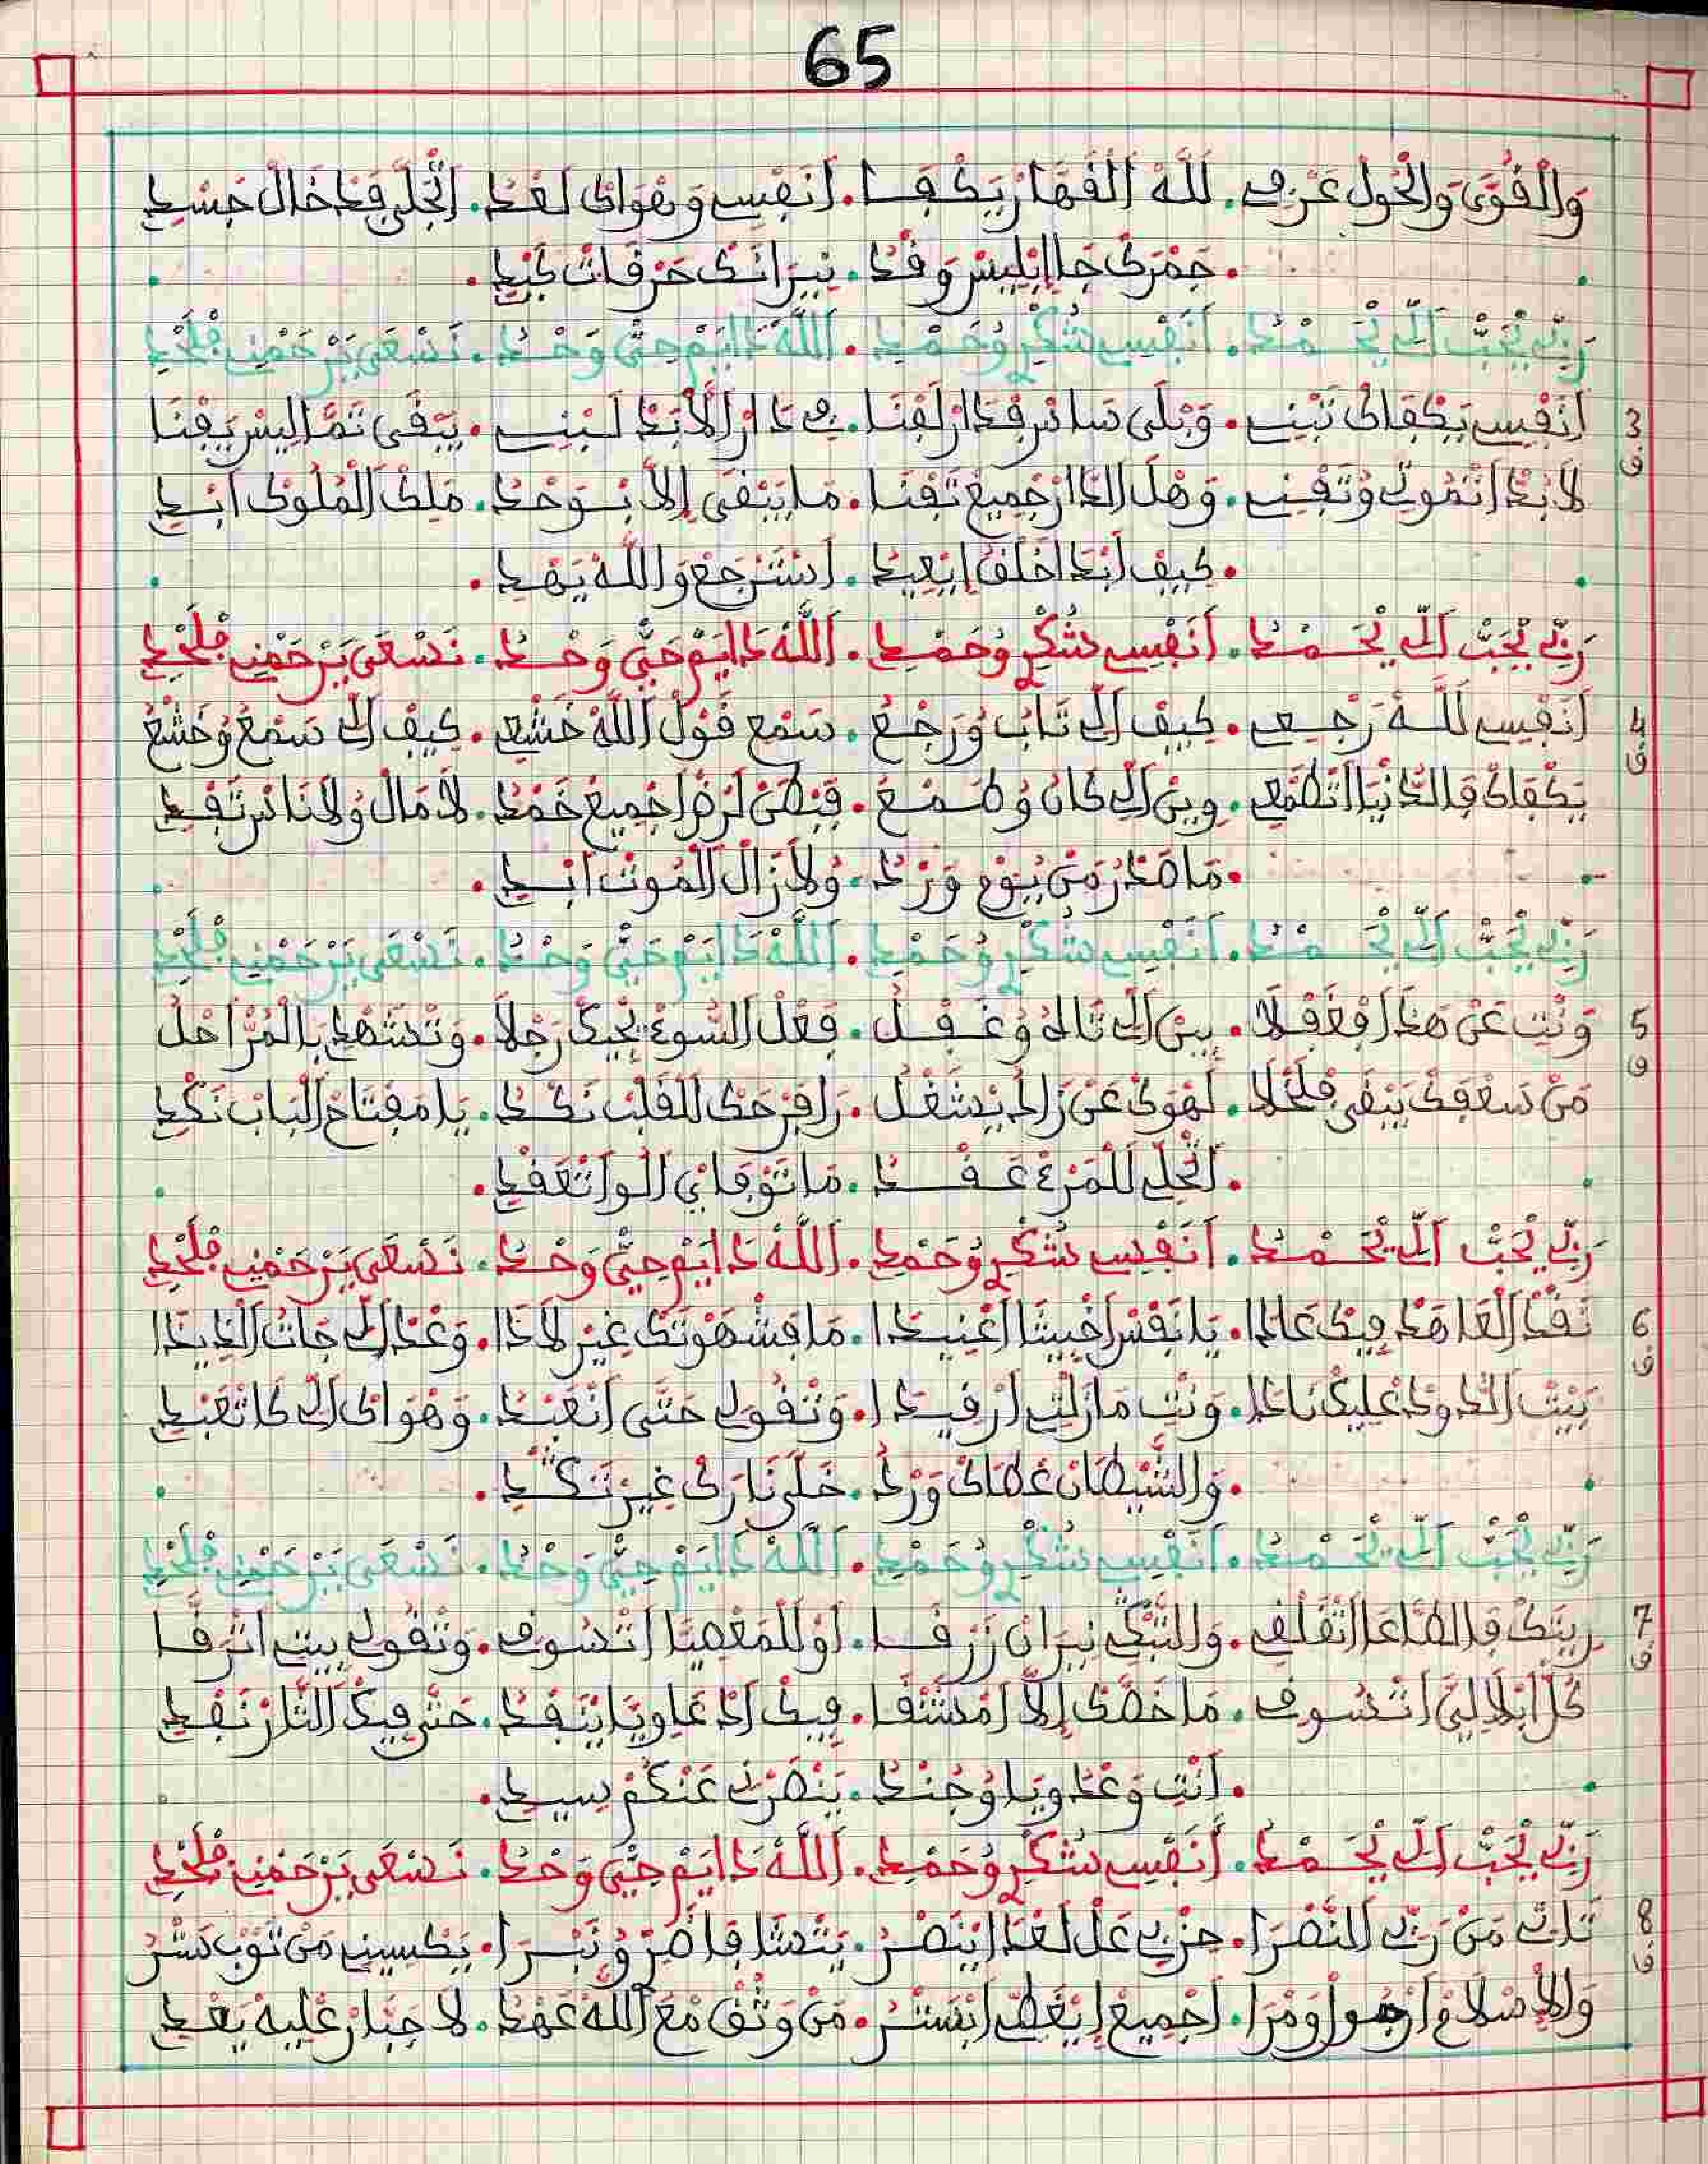 65
وَالْقُوَى وَالْحُولْ عَرْفِ. للَّهْ الْقَهَّارْ يَكْفَا. أَنَفْسِي وَهْوَاكْ لَعْدَ. اتْجَلَّى فَدْخَالْ جَسْدِ
. جَمْرَكْ جَا ابْلِيسْ وَقْدُ. نِيرَانَكْ حَرْقَاتْ كَبْدِ.
رَبِّي يْحَبّْ الِّي يْحَـمْـدُ. أَنَفْسِي شُكْرِ وُحَمْدِ. اللَّهْ دَايَمْ حَيّْ وَحْدُ. نَسْعَى يَرْحَمْنِي فْلَحْدِ
3 أَنَفْسِي يَكْفَاكْ تَبْنِي. وَبْلَى سَاسْ فْدَارْ لَفْنَا. فِي دَارْ الَابَدْ لَبْنِي. يَبْقَى ثَمَّ لِيسْ يَفْنَا
ف لَابُدَّ اتْمُوتِي وُتَفْنِي. وَهْلَ الدَّارْ جْمِيعْ تَفْنَا. مَا يَبْقَى إِلاَّ بْـوَحْدُ. مَلِكْ الْمُلُوكْ ابْدِ
. كِيفْ ابْدَا اخْلَقْ ايْعِيدُ. اسْتَرْجَعْ وَاللَّهْ يَهْدِ.
رَبِّي يْحَبّْ الِّي يْحَـمْـدُ. أَنَفْسِي شُكْرِ وُحَمْدِ. اللَّهْ دَايَمْ حَيّْ وَحْدُ. نَسْعَى يَرْحَمْنِي فْلَحْدِ
4 أَنَفْسِي للَّـهْ رَجْـعِي. كِيفْ الِّي تَابْ وُرَجْـعُ. سَمْعِ قَوْلْ اللَّهْ خَشْعِي. كِيفْ الِّي سَمْعُ وُخَشْعُ
ف يَكْفَاكْ فَالدَّنْيَا اتْطَمْعِي. وِينْ الِّي كَانْ وُطَـمْـعُ. قَبْطَنْ لَرْضْ اجْمِيعْ خَمْدُ. لَا مَالْ وُلَا نَاسْ تَفْدِ
. مَا صْدَرْ مَنْ يُومْ وَرْدُ. وُلَا زَالْ الْمُوتْ ابْدِ.
رَبِّي يْحَبّْ الِّي يْحَـمْـدُ. أَنَفْسِي شُكْرِ وُحَمْدِ. اللَّهْ دَايَمْ حَيّْ وَحْدُ. نَسْعَى يَرْحَمْنِي فْلَحْدِ
5 وَنْتِ عَنْ هَذَا فْغَفْلَا. بِينْ الِّي تَالَهْ وُغَـفْـلُ. فِعْلْ السُّوءْ يْجِيكْ رَجْلَا. وَتْشَهْدِ بِالْمُرّْ احْلُ
ف مَنْ سَعْفَكْ يَبْقَى فْخَلَا. لَهْوَكْ عَنْ زَادُ يْشَغْلُ. رَا فَرْحَكْ لَلْقَلْبْ نَكْـدُ. يَا مَفْتَاحْ الْبَابْ نَكْدِ
. الْجَلّْ لَلْمَرْءْ عَـقْـدُ. مَا تَوْفَايْ الُوا تْعَقْدِ.
رَبِّي يْحَبّْ الِّي يْحَـمْـدُ. أَنَفْسِي شُكْرِ وُحَمْدِ. اللَّهْ دَايَمْ حَيّْ وَحْدُ. نَسْعَى يَرْحَمْنِي فْلَحْدِ
6 نَفْدْ الْعَاهَدْ فِيكْ عَادَا. يَا نَفْسْ اخْبِيثَا اعْنِيدَا. مَا فْشَهْوَتَكْ غِيرْ لَادَا. وَعْدْ الِّي جَاتْ الْذِيذَا
ف بَيْتْ الدُّودْ عْلِيكْ نَادَا. وَنْتِ مَازَلْتِ ارْقِيدَا. وَتْقُولِي حَتَّى انْعَبْدُ. وَهْوَاكْ الِّي كَا تْعَبْدِ
. وَالشَّيْطَانْ عْطَاكْ وَرْدُ. خَلَّى نَارَكْ غِيرْ تَكْدِ.
رَبِّي يْحَبّْ الِّي يْحَـمْـدُ. أَنَفْسِي شُكْرِ وُحَمْدِ. اللَّهْ دَايَمْ حَيّْ وَحْدُ. نَسْعَى يَرْحَمْنِي فْلَحْدِ
7 رِيتَكْ فَالطَّاعَا اتْقَلْفِي. وَالتَّبْكِي نِيرَانْ زَرْقَـا. أَوْ للْمَعْصِيَا اتْسُوفِ. وَتْقُولِي بِيتْ اتْرَقَّـا
ف كُلّْ ابْلَا لِيَّ اتْـسُوفِ. مَا خَصَّكْ إِلاَّ امْشَنْقَا. فِيكْ ادْعَاوِيَا يْنَفْدُ. حَتَّى فِيكْ الثَّارْ نَفْدِ
. أَنْتِ وَعْدُويَا وُجُنْدُ. يَنْصَرْنِي عَنْكُمْ سِيدِ.
رَبِّي يْحَبّْ الِّي يْحَـمْـدُ. أَنَفْسِي شُكْرِ وُحَمْدِ. اللَّهْ دَايَمْ حَيّْ وَحْدُ. نَسْعَى يَرْحَمْنِي فْلَحْدِ
8 تَاتِي مَنْ رَبِّي النَّصْرَا. حِزْبِي عَلْ لَعْدَا يْنَصْرُ. يَتْمَشَّا قَاصَرْ وُنَبْـرَا. يَكْسِينِي مَنْ ثَوْبْ سَتْرُ
ف وَالاِسْلَامْ ارْضُوا وَمْرَا. اجْمِيعْ ايْغَطِّي ابْسَتْرُ. مَنْ وَثْقْ مْعَ اللَّهْ عَهْدُ. لَا جَبَّارْ عْلِيهْ يَعْدِ